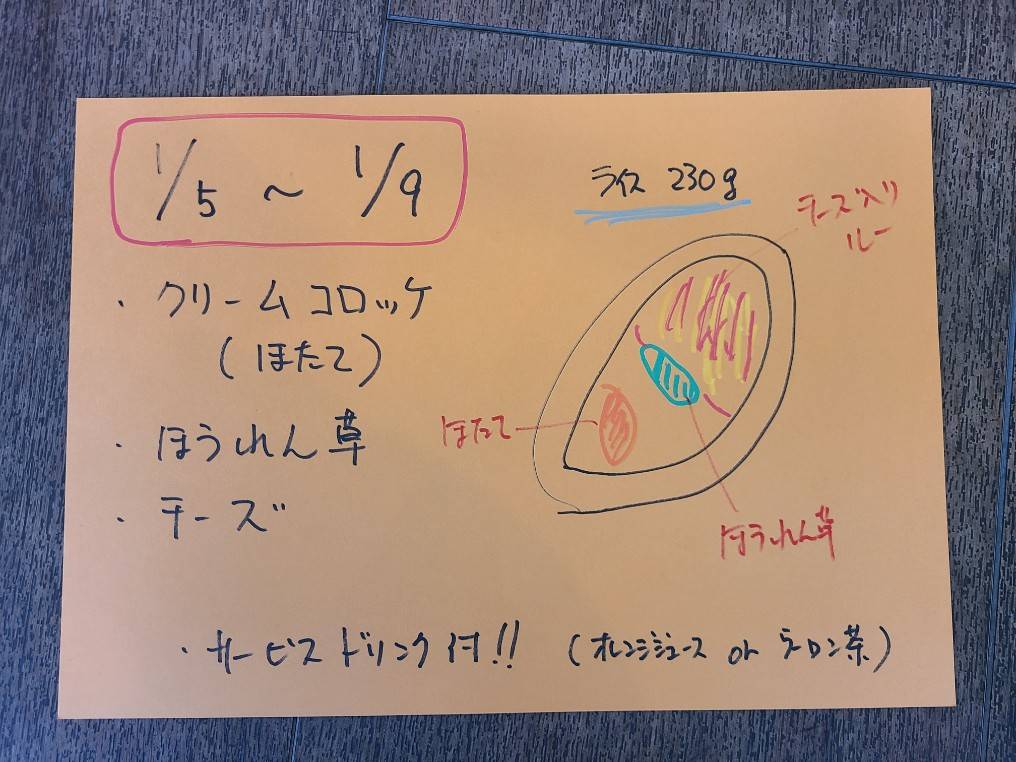 1/5 ～ 1/9
・クリームコロッケ
(ほたて)
・ほうれん草
・チーズ
ライス 230g
チーズ入り
ルー
ほたて
ほうれん草
・サービスドリンク付!! (オレンジジュース or ウーロン茶)